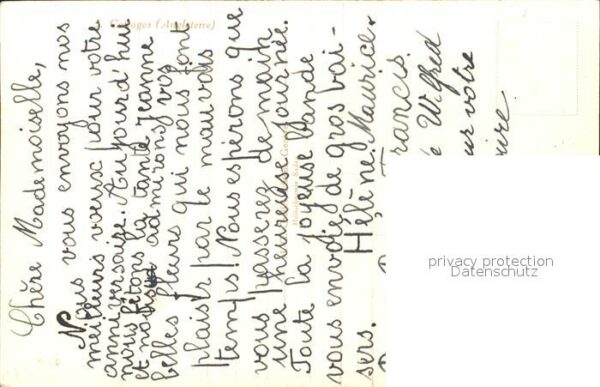 Cottages (Angleterre)
Chère Mademoiselle,
Nous vous envoyons nos
meilleurs voeux pour votre
anniversaire. Aujourd'hui
nous fêtons la tante Jeanne
et nous admirons vos
belles fleurs qui nous font
plaisir par le mauvais
temps! Nous espérons que
vous passerez demain
une heureuse journée.
Toute la joyeuse bande
vous envoie de gros bai-
sers. Hélène. Maurice.
Francis.
Wilfred
sur votre
privacy protection
Datenschutz